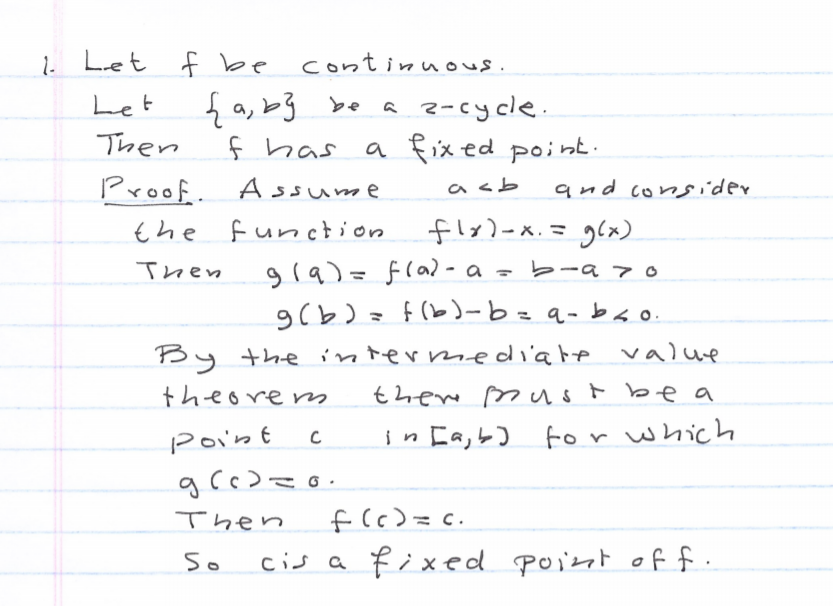 1. Let f be continuous.
Let {a,b} be a 2-cycle.
Then f has a fixed point.
Proof. Assume a<b and consider
the function f(x)-x. = g(x)
Then g(a) = f(a)-a = b-a > 0
g(b) = f(b)-b = a-b < 0.
By the intermediate value
theorem there must be a
point c in [a,b] for which
g(c) = 0.
Then f(c) = c.
So c is a fixed point of f.